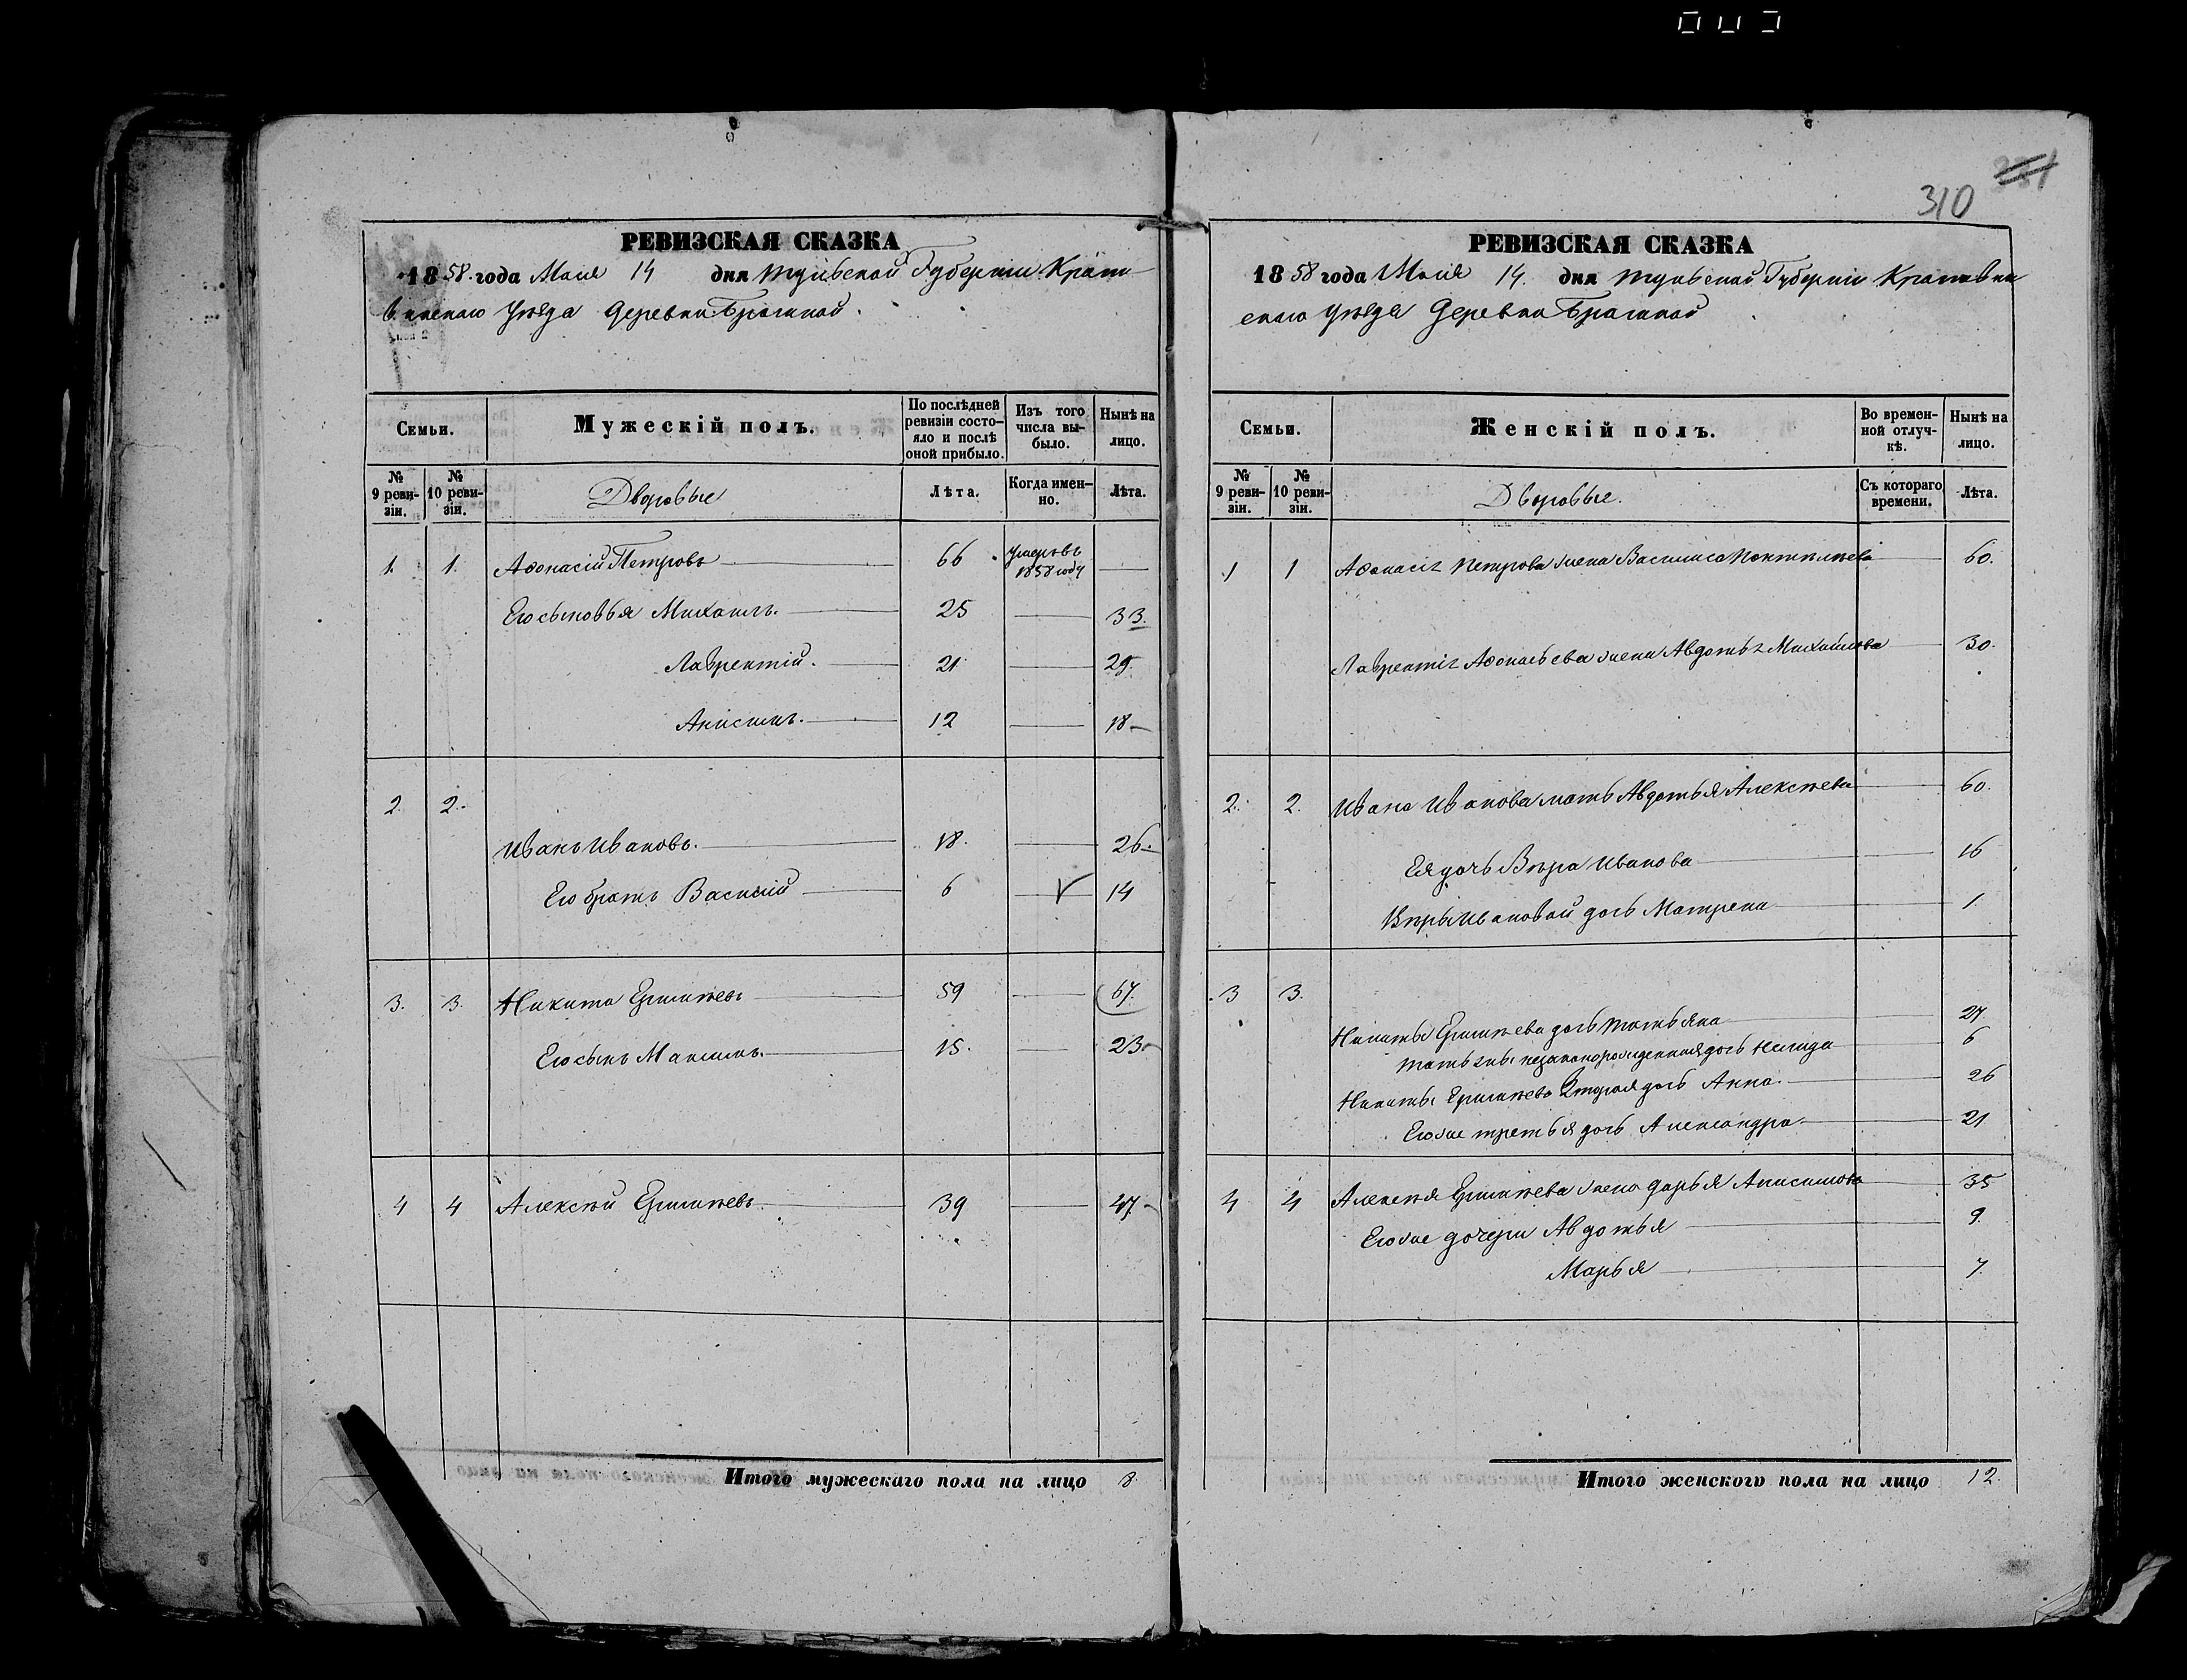 310
РЕВИЗСКАЯ СКАЗКА
1858 года Маія 14 дня Тульской Губерніи Крапи-
венскаго уѣзда деревни
Семьи.
Мужескій полъ.
По послѣдней ревизіи состояло и послѣ оной прибыло.
Изъ того числа выбыло.
Нынѣ на лицо.
№ 9 ревизіи.
№ 10 ревизіи.
Дворовые
Лѣта.
Когда именно.
Лѣта.
1. 1. Афонасій Петровъ 66 умеръ въ 1858 году
Его сыновья Михаилъ. 25 33.
Лаврентій. 21 29
Анисимъ. 12 18
2. 2.
Иванъ Ивановъ. 18. 26.
Его братъ Василій 6 14
3. 3. Никита 59 67.
Его сынъ Максимъ. 15. 23
4 4 Алексѣй 39 47
Итого мужескаго пола на лицо 8.
РЕВИЗСКАЯ СКАЗКА
1858 года Маія 14. дня Тульской Губерніи Крапивен
скаго уѣзда деревни
Семьи.
Женскій полъ.
Во временной отлучкѣ.
Нынѣ на лицо.
№ 9 ревизіи.
№ 10 ревизіи.
Дворовые.
Съ котораго времени.
Лѣта.
1 1 Афонасія Петрова жена Василиса 60.
Лаврентія Афонасьева жена Авдотья Михайлова 30.
2. 2. Ивана Иванова мать Авдотья Алексѣева 60.
Ея дочь Вѣра Иванова 16
Вѣры Ивановой дочь Матрена 1
3 3.
Никиты дочь Татьяна 27
Татьяны незаконорожденная дочь 6
Никиты вторая дочь Анна. 26
Его же третья дочь Александра 21
4 4 Алексѣя жена Дарья Анисимова 35
Его же дочери Авдотья 9.
Марья 7.
Итого женского пола на лицо 12.